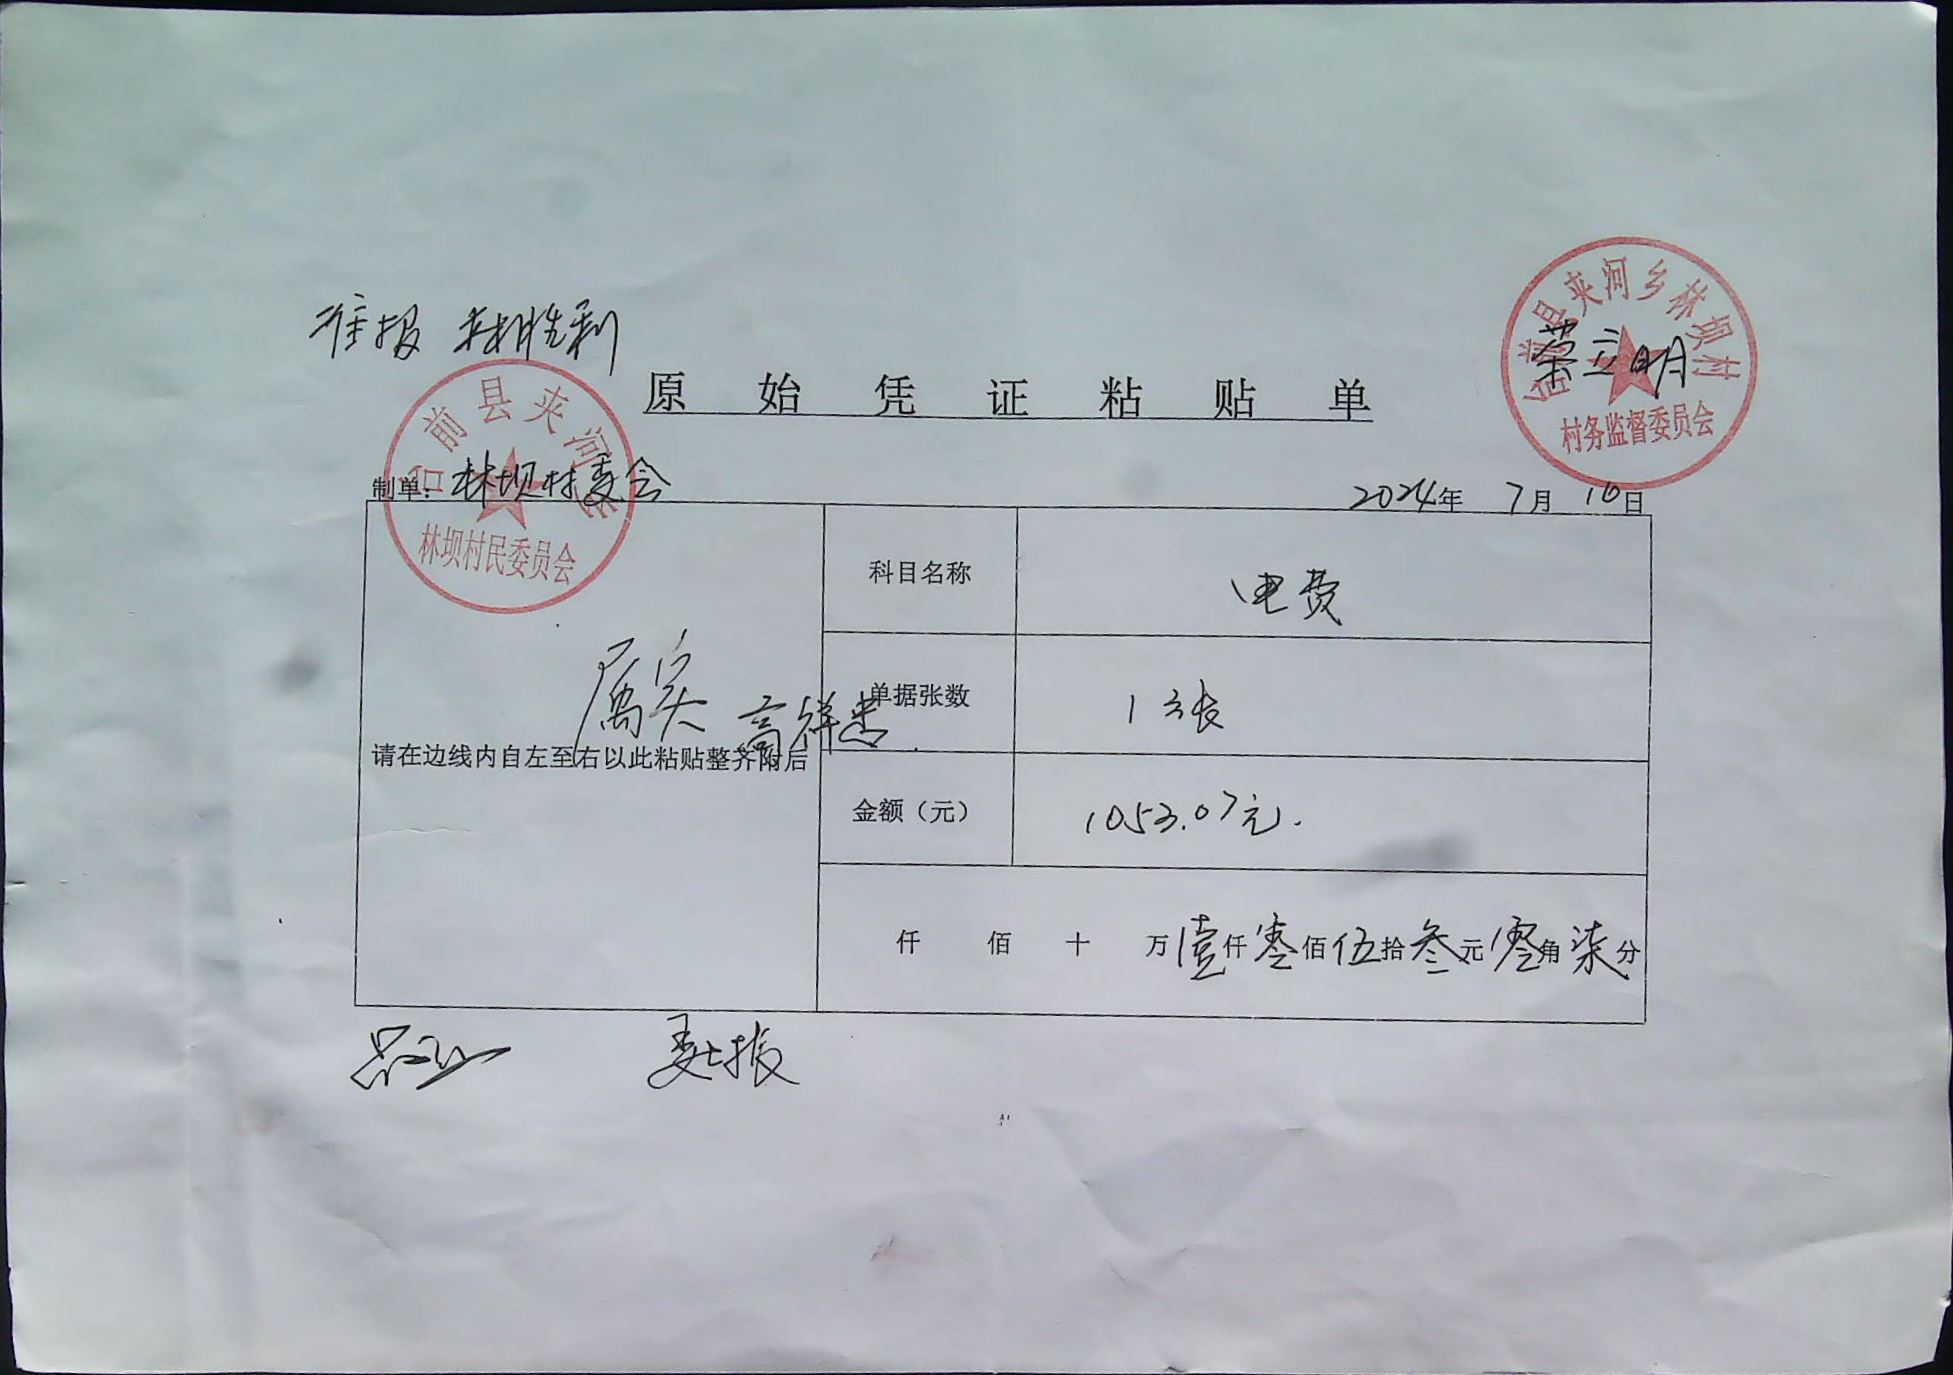 准报 林胜利
荣立明
台前县夹河乡林坝村
村务监督委员会
原始凭证粘贴单
台前县夹河乡
林坝村民委员会
制单：林坝村委会
2024年 7月 10日
科目名称 电费
属实 高祥忠
单据张数 1张
请在边线内自左至右以此粘贴整齐附后
金额（元） 1053.07元.
仟 佰 十 万壹仟零佰伍拾叁元零角柒分